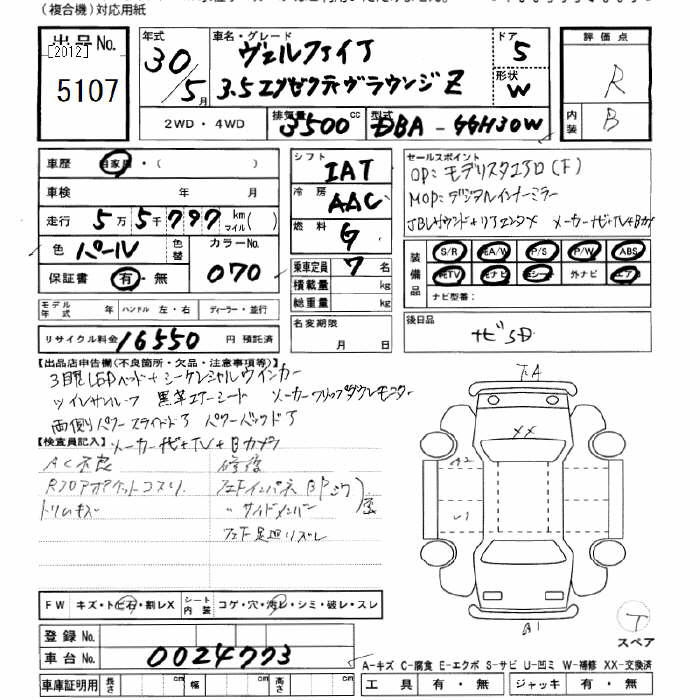 (複合機)対応用紙
出品No. [2012] 5107
年式 30/5月
車名・グレード ヴェルファイア
3.5エグゼクティブラウンジZ
ドア 5
形状 W
2WD・4WD
排気量 3500cc
型式 DBA-GGH30W
評価点 R
内装 B
車歴 自家用・( )
車検 年 月
走行 5万5千797km マイル( )
色 パール 色替 カラーNo. 070
保証書 有・無
シフト IAT
冷房 AAC
燃料 G
乗車定員 7名
積載量 kg
総重量 kg
セールスポイント
OP:モデリスタエアロ(F)
MOP:デジタルインナーミラー
JBLサウンド+リアエンタメ メーカーナビ+TV+Bカメ
装備品 S/R 純A/W P/S P/W ABS
純TV 純ナビ 革シート 外ナビ エアB
ナビ型番:
モデル年式 年 ハンドル 左・右 ディーラー・並行
リサイクル料金 16550円 預託済
名変期限 月 日
後日品 ナビSD
【出品店申告欄(不良箇所・欠品・注意事項等)】
3眼LEDヘッド+シーケンシャルウインカー
ツインサンルーフ 黒革エアーシート メーカーフリップダウンモニター
両側パワースライドドア パワーバックドア
メーカーナビ+TV+Bカメラ
【検査員記入】
AC不良 修復
Rフロアポケットコスリ
トリムキズ
〃 サイドメンバー
F W キズ・トビ石・割レX シート内装 コゲ・穴・汚レ・シミ・破レ・スレ
登録No.
車台No. 0024773
車庫証明用 長さ cm 幅 cm 高さ cm
A
XX
A2
U1
B1
T
スペア
A-キズ C-腐食 E-エクボ S-サビ U-凹ミ W-補修 XX-交換済
工具 有・無 ジャッキ 有・無